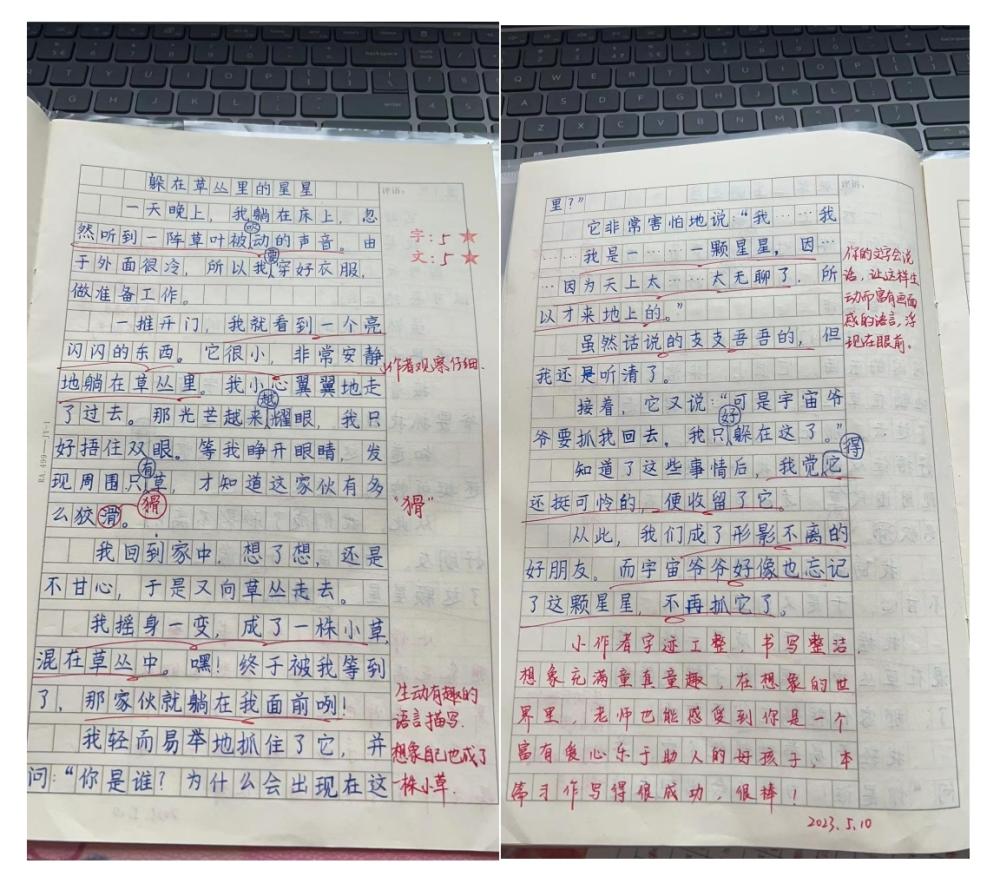 躲在草丛里的星星
一天晚上，我躺在床上，忽
然听到一阵草叶被吹动的声音。由
于外面很冷，所以我要穿好衣服，
做准备工作。
一推开门，我就看到一个亮
闪闪的东西。它很小，非常安静
地躺在草丛里。我小心翼翼地走
了过去。那光芒越来越耀眼，我只
好捂住双眼。等我睁开眼睛，发
现周围只有草，才知道这家伙有多
么狡滑。
猾
我回到家中，想了想，还是
不甘心，于是又向草丛走去。
我摇身一变，成了一株小草，
混在草丛中。嘿！终于被我等到
了，那家伙就躺在我面前咧！
我轻而易举地抓住了它，并
问：“你是谁？为什么会出现在这
评语：
字：5★
文：5★
作者观察仔细.
“猾”
生动有趣的
语言描写.
想象自己也成了
一株小草.
里？”
它非常害怕地说：“我……我
我是一……一颗星星，因…
…因为天上太……太无聊了，所
以才来地上的。”
虽然话说的支支吾吾的，但
我还是听清了。
接着，它又说：“可是宇宙爷
爷要抓我回去，我只好躲在这了。”
知道了这些事情后，我觉得它
还挺可怜的，便收留了它。
从此，我们成了形影不离的
好朋友。而宇宙爷爷好像也忘记
了这颗星星，不再抓它了。
小作者字迹工整，书写整洁
想象充满童真童趣，在想象的世
界里，老师也能感受到你是一个
富有爱心乐于助人的好孩子，本
篇习作写得很成功，很棒！
2023.5.10
评语：
你的文字会说
话，让这样生
动而富有画面
感的语言，浮
现在眼前。